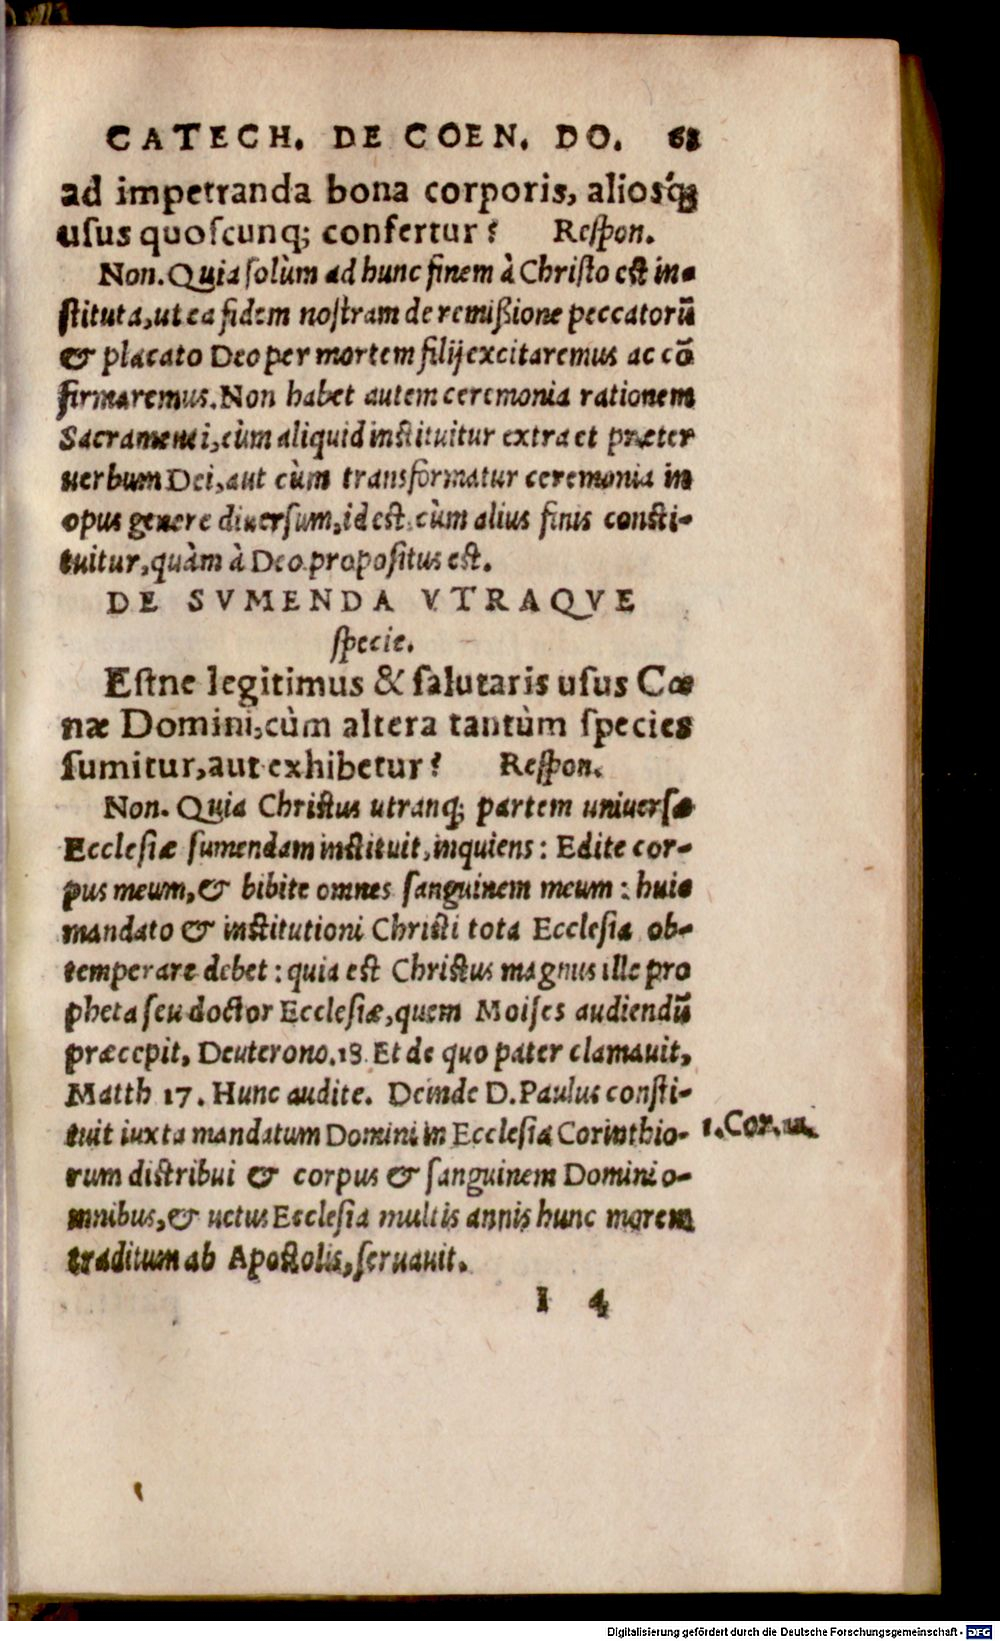 CATECH. DE COEN. DO. 68
ad impetranda bona corporis, aliosq́;
usus quoscunq; confertur? Respon.
Non. Quia solùm ad hunc finem à Christo est in-
stituta, ut ea fidem nostram de remißione peccatorū
& placato Deo per mortem filij excitaremus ac cō
firmaremus. Non habet autem ceremonia rationem
Sacramenti, cùm aliquid instituitur extra et præter
uerbum Dei, aut cùm transformatur ceremonia in
opus genere diuersum, id est cùm alius finis consti-
tuitur, quàm à Deo propositus est.
DE SVMENDA VTRAQVE
specie.
Estne legitimus & salutaris usus Cœ
næ Domini, cùm altera tantùm species
sumitur, aut exhibetur? Respon.
Non. Quia Christus utranq; partem uniuersæ
Ecclesiæ sumendam instituit, inquiens: Edite cor-
pus meum, & bibite omnes sanguinem meum: huic
mandato & institutioni Christi tota Ecclesia ob-
temperare debet: quia est Christus magnus ille pro
pheta seu doctor Ecclesiæ, quem Moises audiendū
præcepit, Deuterono. 18. Et de quo pater clamauit,
Matth 17. Hunc audite. Deinde D. Paulus consti-
tuit iuxta mandatum Domini in Ecclesia Corinthio- 1. Cor. 11.
rum distribui & corpus & sanguinem Domini o-
mnibus, & uetus Ecclesia multis annis hunc morem
traditum ab Apostolis, seruauit.
I 4
Digitalisierung gefördert durch die Deutsche Forschungsgemeinschaft - DFG